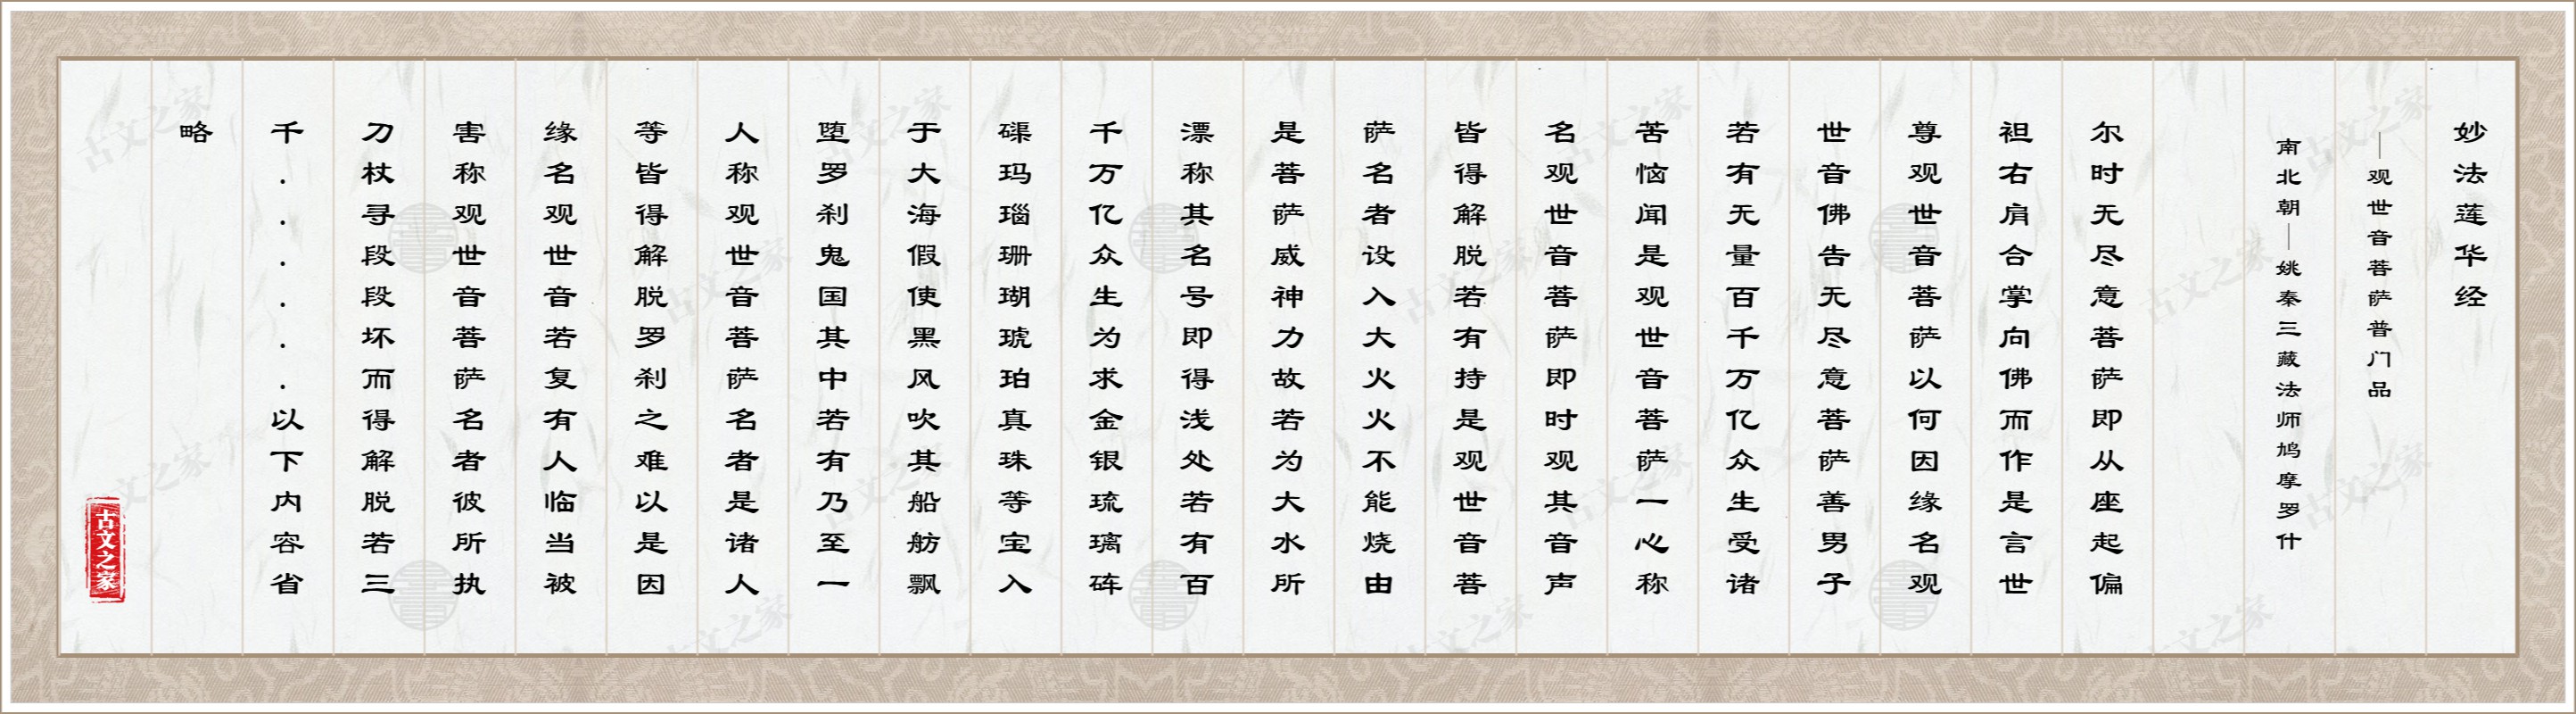 妙法莲华经
—观世音菩萨普门品
南北朝—姚秦三藏法师鸠摩罗什
尔时无尽意菩萨即从座起偏
袒右肩合掌向佛而作是言世
尊观世音菩萨以何因缘名观
世音佛告无尽意菩萨善男子
若有无量百千万亿众生受诸
苦恼闻是观世音菩萨一心称
名观世音菩萨即时观其音声
皆得解脱若有持是观世音菩
萨名者设入大火火不能烧由
是菩萨威神力故若为大水所
漂称其名号即得浅处若有百
千万亿众生为求金银琉璃砗
磲玛瑙珊瑚琥珀真珠等宝入
于大海假使黑风吹其船舫飘
堕罗刹鬼国其中若有乃至一
人称观世音菩萨名者是诸人
等皆得解脱罗刹之难以是因
缘名观世音若复有人临当被
害称观世音菩萨名者彼所执
刀杖寻段段坏而得解脱若三
千......以下内容省
略
古文之家